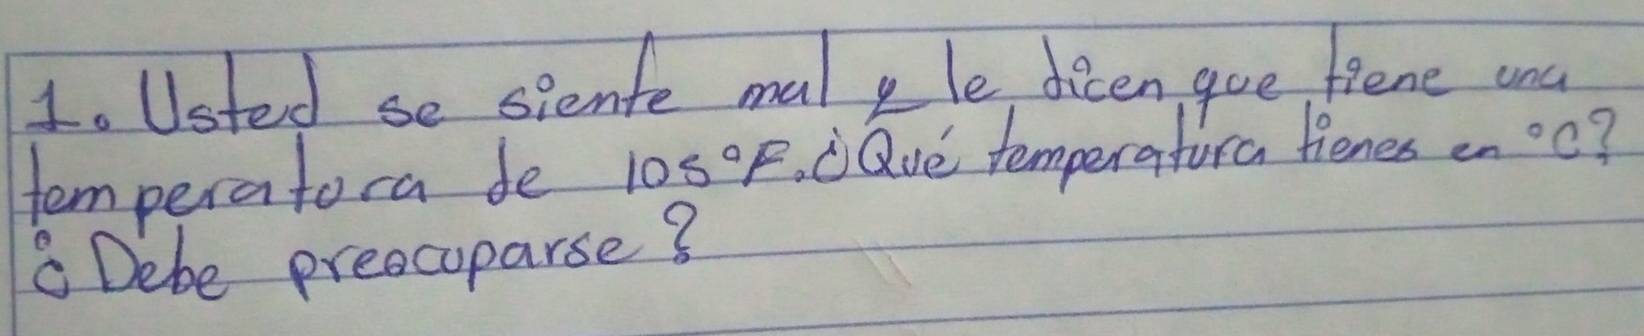 1. Usted se siente mal y le dicen que tiene una
temperatura de 105°F. ¿Qué temperatura tienes en °C?
¿Debe preocuparse?